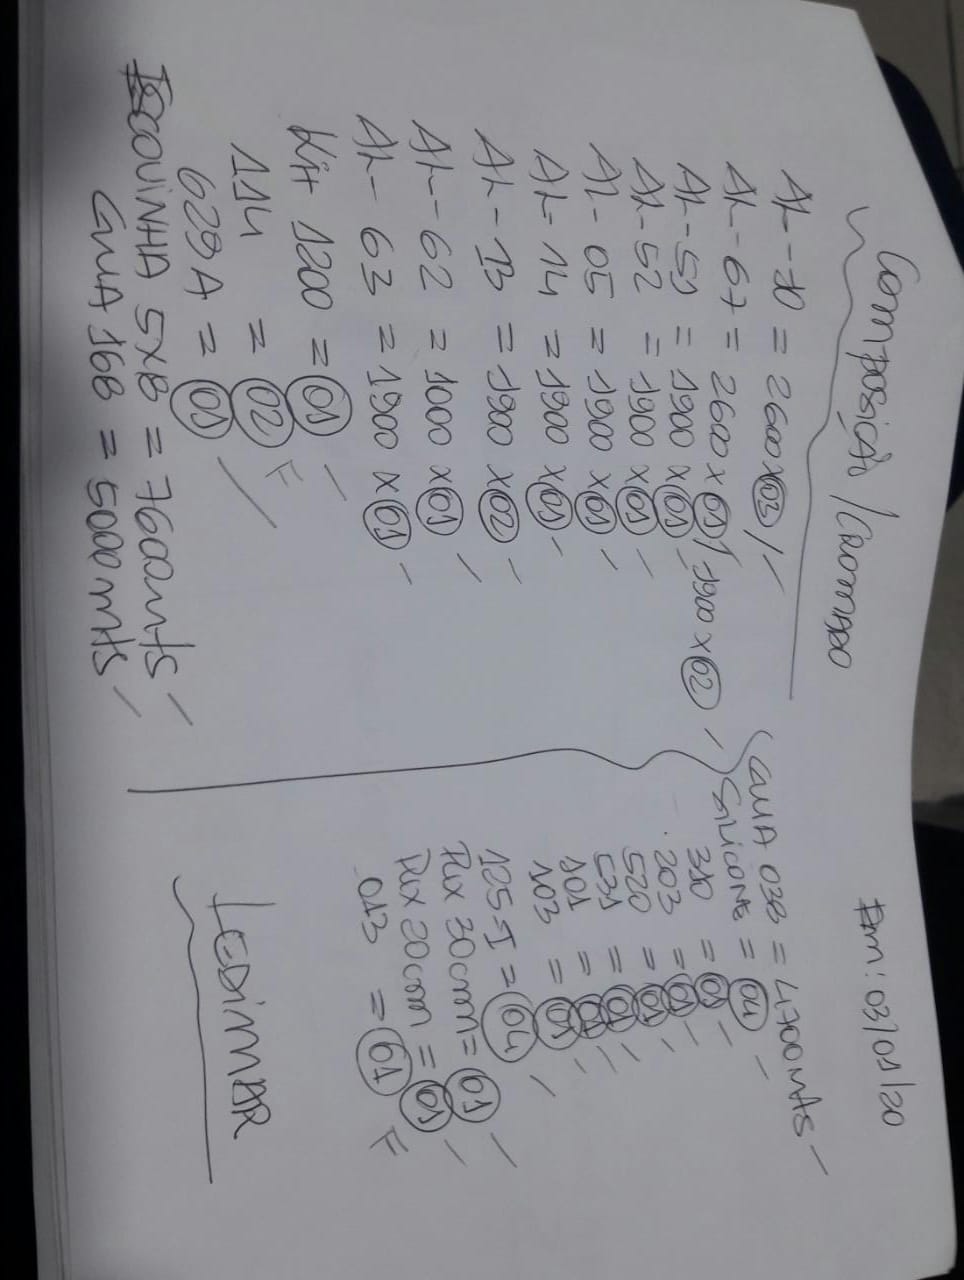 Composição / Cromado
Em: 03/01/20
AL-70 = 2600 x 03 /
AL-67 = 2600 x 01 / 1900 x 02
AL-51 = 1900 x 01
AL-52 = 1900 x 01
AL-05 = 1900 x 01
AL-14 = 1900 x 01
AL-13 = 1900 x 02
AL-62 = 1000 x 01
AL-63 = 1900 x 01
Kit 1200 = 01
114 = 02 F
629A = 01
ESCOVINHA 5x8 = 7600mts
GUIA 168 = 5000mts
GUIA 038 = 4700mts
SILICONE = 04
310 = 01
203 = 01
520 = 01
531 = 01
101 = 01
103 = 01
125 I = 04
PUX 30cm = 01
PUX 20cm = 01
013 = 01 F
LEDIMAR